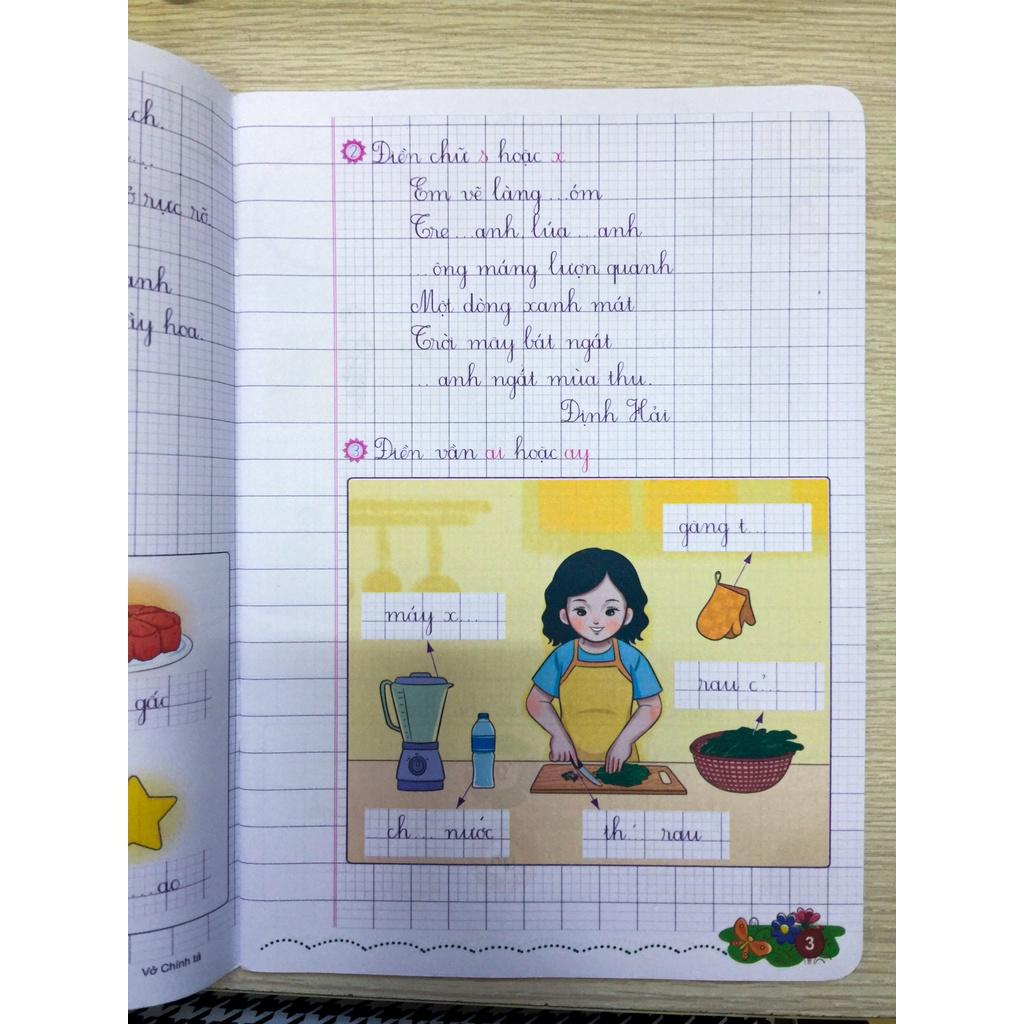 ch.
rực rỡ.
anh
ây hoa.
gấc
...ao
Vở Chính tả
2 Điền chữ s hoặc x
Em vẽ làng ...óm
Tre ...anh, lúa ...anh
...ông máng lượn quanh
Một dòng xanh mát
Trời mây bát ngát
...anh ngắt mùa thu.
Định Hải
3 Điền vần ai hoặc ay
găng t...
máy x...
rau c̉...
ch... nước
th́... rau
3